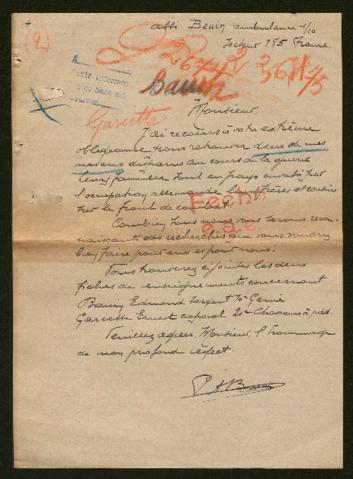 (2)
abbé Bauin ambulance 1/10
Secteur 185 France.
Bauin
Garcette
Monsieur,
J'ai recours à votre extrême
obligeance pour retrouver deux de mes
neveux disparus au cours de la guerre
leurs familles sont en pays envahi par
l'occupation allemande les frères et cousins
sur le front de combat.
Combien nous vous serons recon-
naissants des recherches que vous voudrez
bien faire pour eux et pour nous.
Vous trouverez ci-jointes les deux
fiches de renseignements concernant
Bauin Edmond sergent Génie
Garcette Ernest caporal Chasseurs à pied.
Veuillez agréer, Monsieur, l'hommage
de mon profond respect.